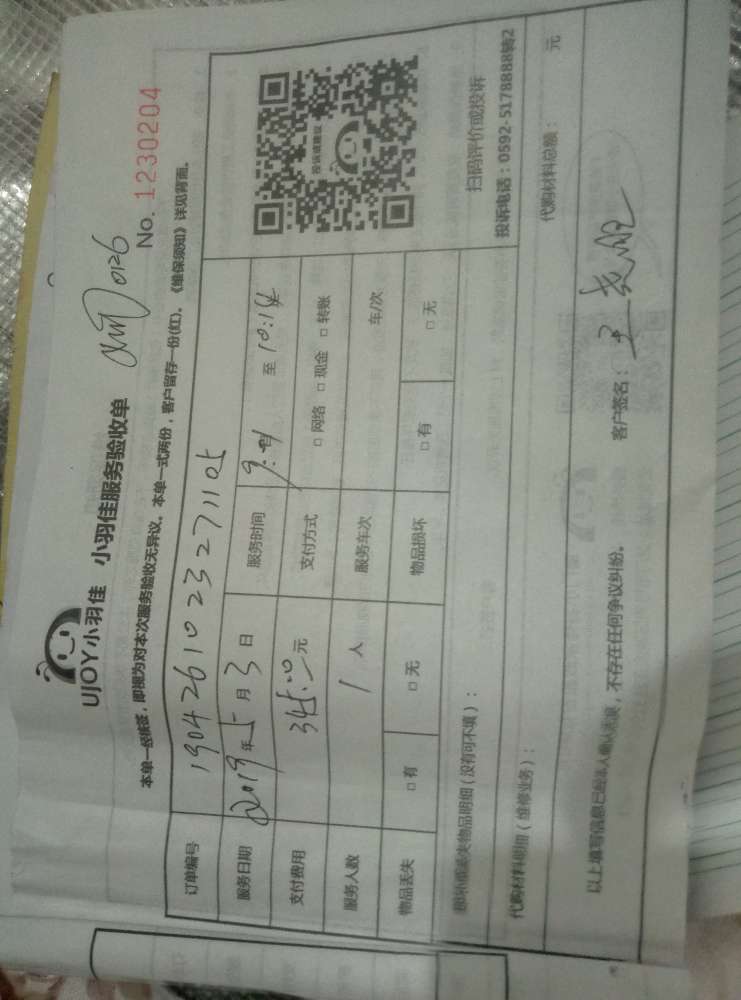 UJOY小羽佳 小羽佳服务验收单
0126
No. 1230204
本单一经核签，即视为对本次服务验收无异议。本单一式两份，客户留存一份(红)。《维保须知》详见背面。
订单编号 1904261023271105
服务日期 2019年5月3日 服务时间 至
支付费用 345.00元 支付方式 □ 网络 □ 现金 □ 转账
服务人数 1 人 服务车次 车/次
物品丢失 □ 有 □ 无 物品损坏 □ 有 □ 无
投诉或建议
扫码评价或投诉
投诉电话：0592-5178888转2
损坏或丢失物品明细（没有可不填）：
代购材料明细（维修业务）： 代购材料总额： 元
以上填写信息已经本人确认无误，不存在任何争议纠纷。 客户签名：